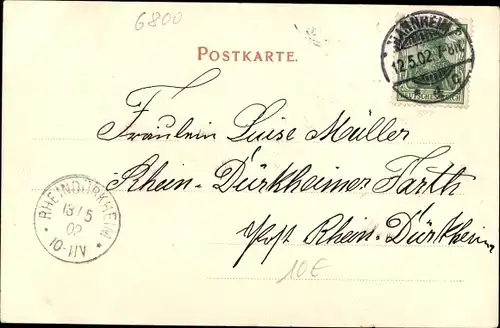 6800
POSTKARTE.
MANNHEIM 2
12.5.02.7-8N.
DEUTSCHES REICH
Fräulein Luise Müller
Rhein-Dürkheimer Farth
RHEINDÜRKHEIM
13/5
02
10-11V
Post Rhein-Dürkheim
10 €